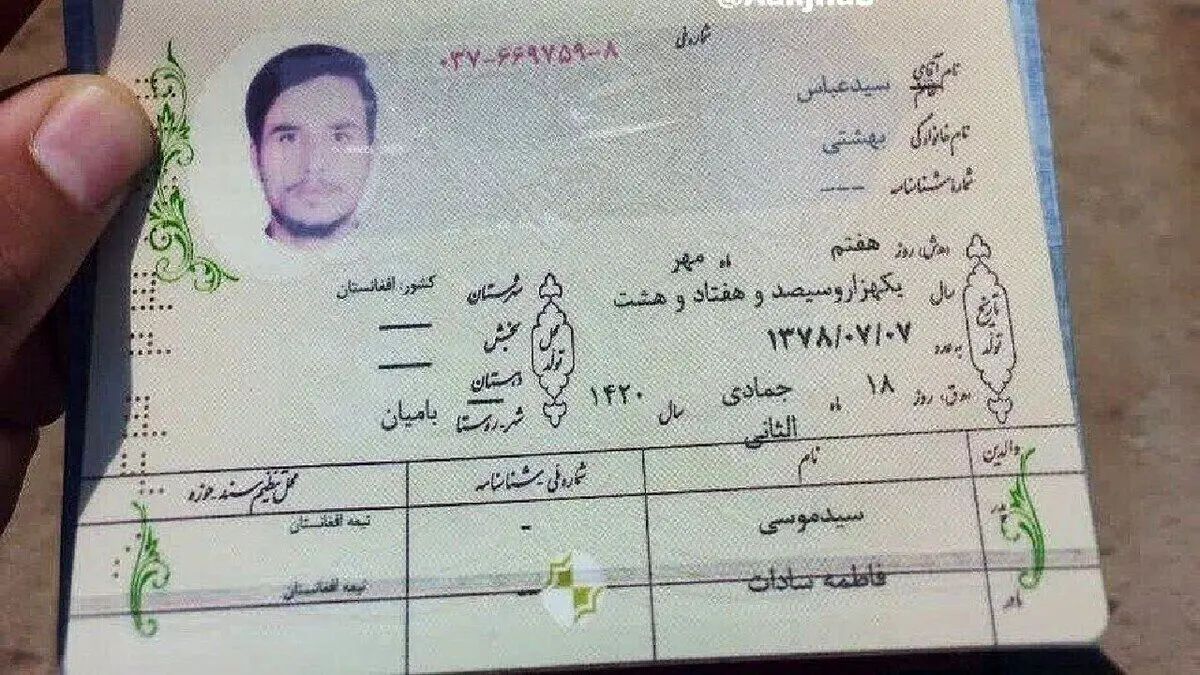 شماره ملی ۰۳۷-۶۶۹۷۵۹-۸
نام آقای خانم سیدعباس
نام خانوادگی بهشتی
شماره شناسنامه ---
تاریخ تولد
ه‍.ش، روز هفتم ماه مهر
سال یکهزاروسیصد و هفتاد و هشت
به عدد ۱۳۷۸/۰۷/۰۷
ه‍.ق، روز ۱۸ ماه جمادی الثانی سال ۱۴۲۰
محل تولد
شهرستان کشور، افغانستان
بخش —
دهستان —
شهر-روستا بامیان
والدین نام شماره ملی-شناسنامه محل تنظیم سند-حوزه
پدر سیدموسی - تبعه افغانستان
مادر فاطمه سادات - تبعه افغانستان